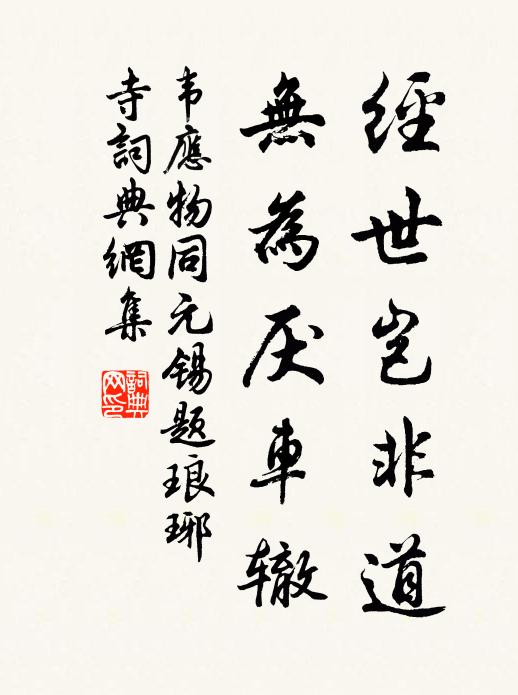 經世豈非道
無為厌車辙
韦應物同元锡题琅琊
寺詞典網集
詞典
网印